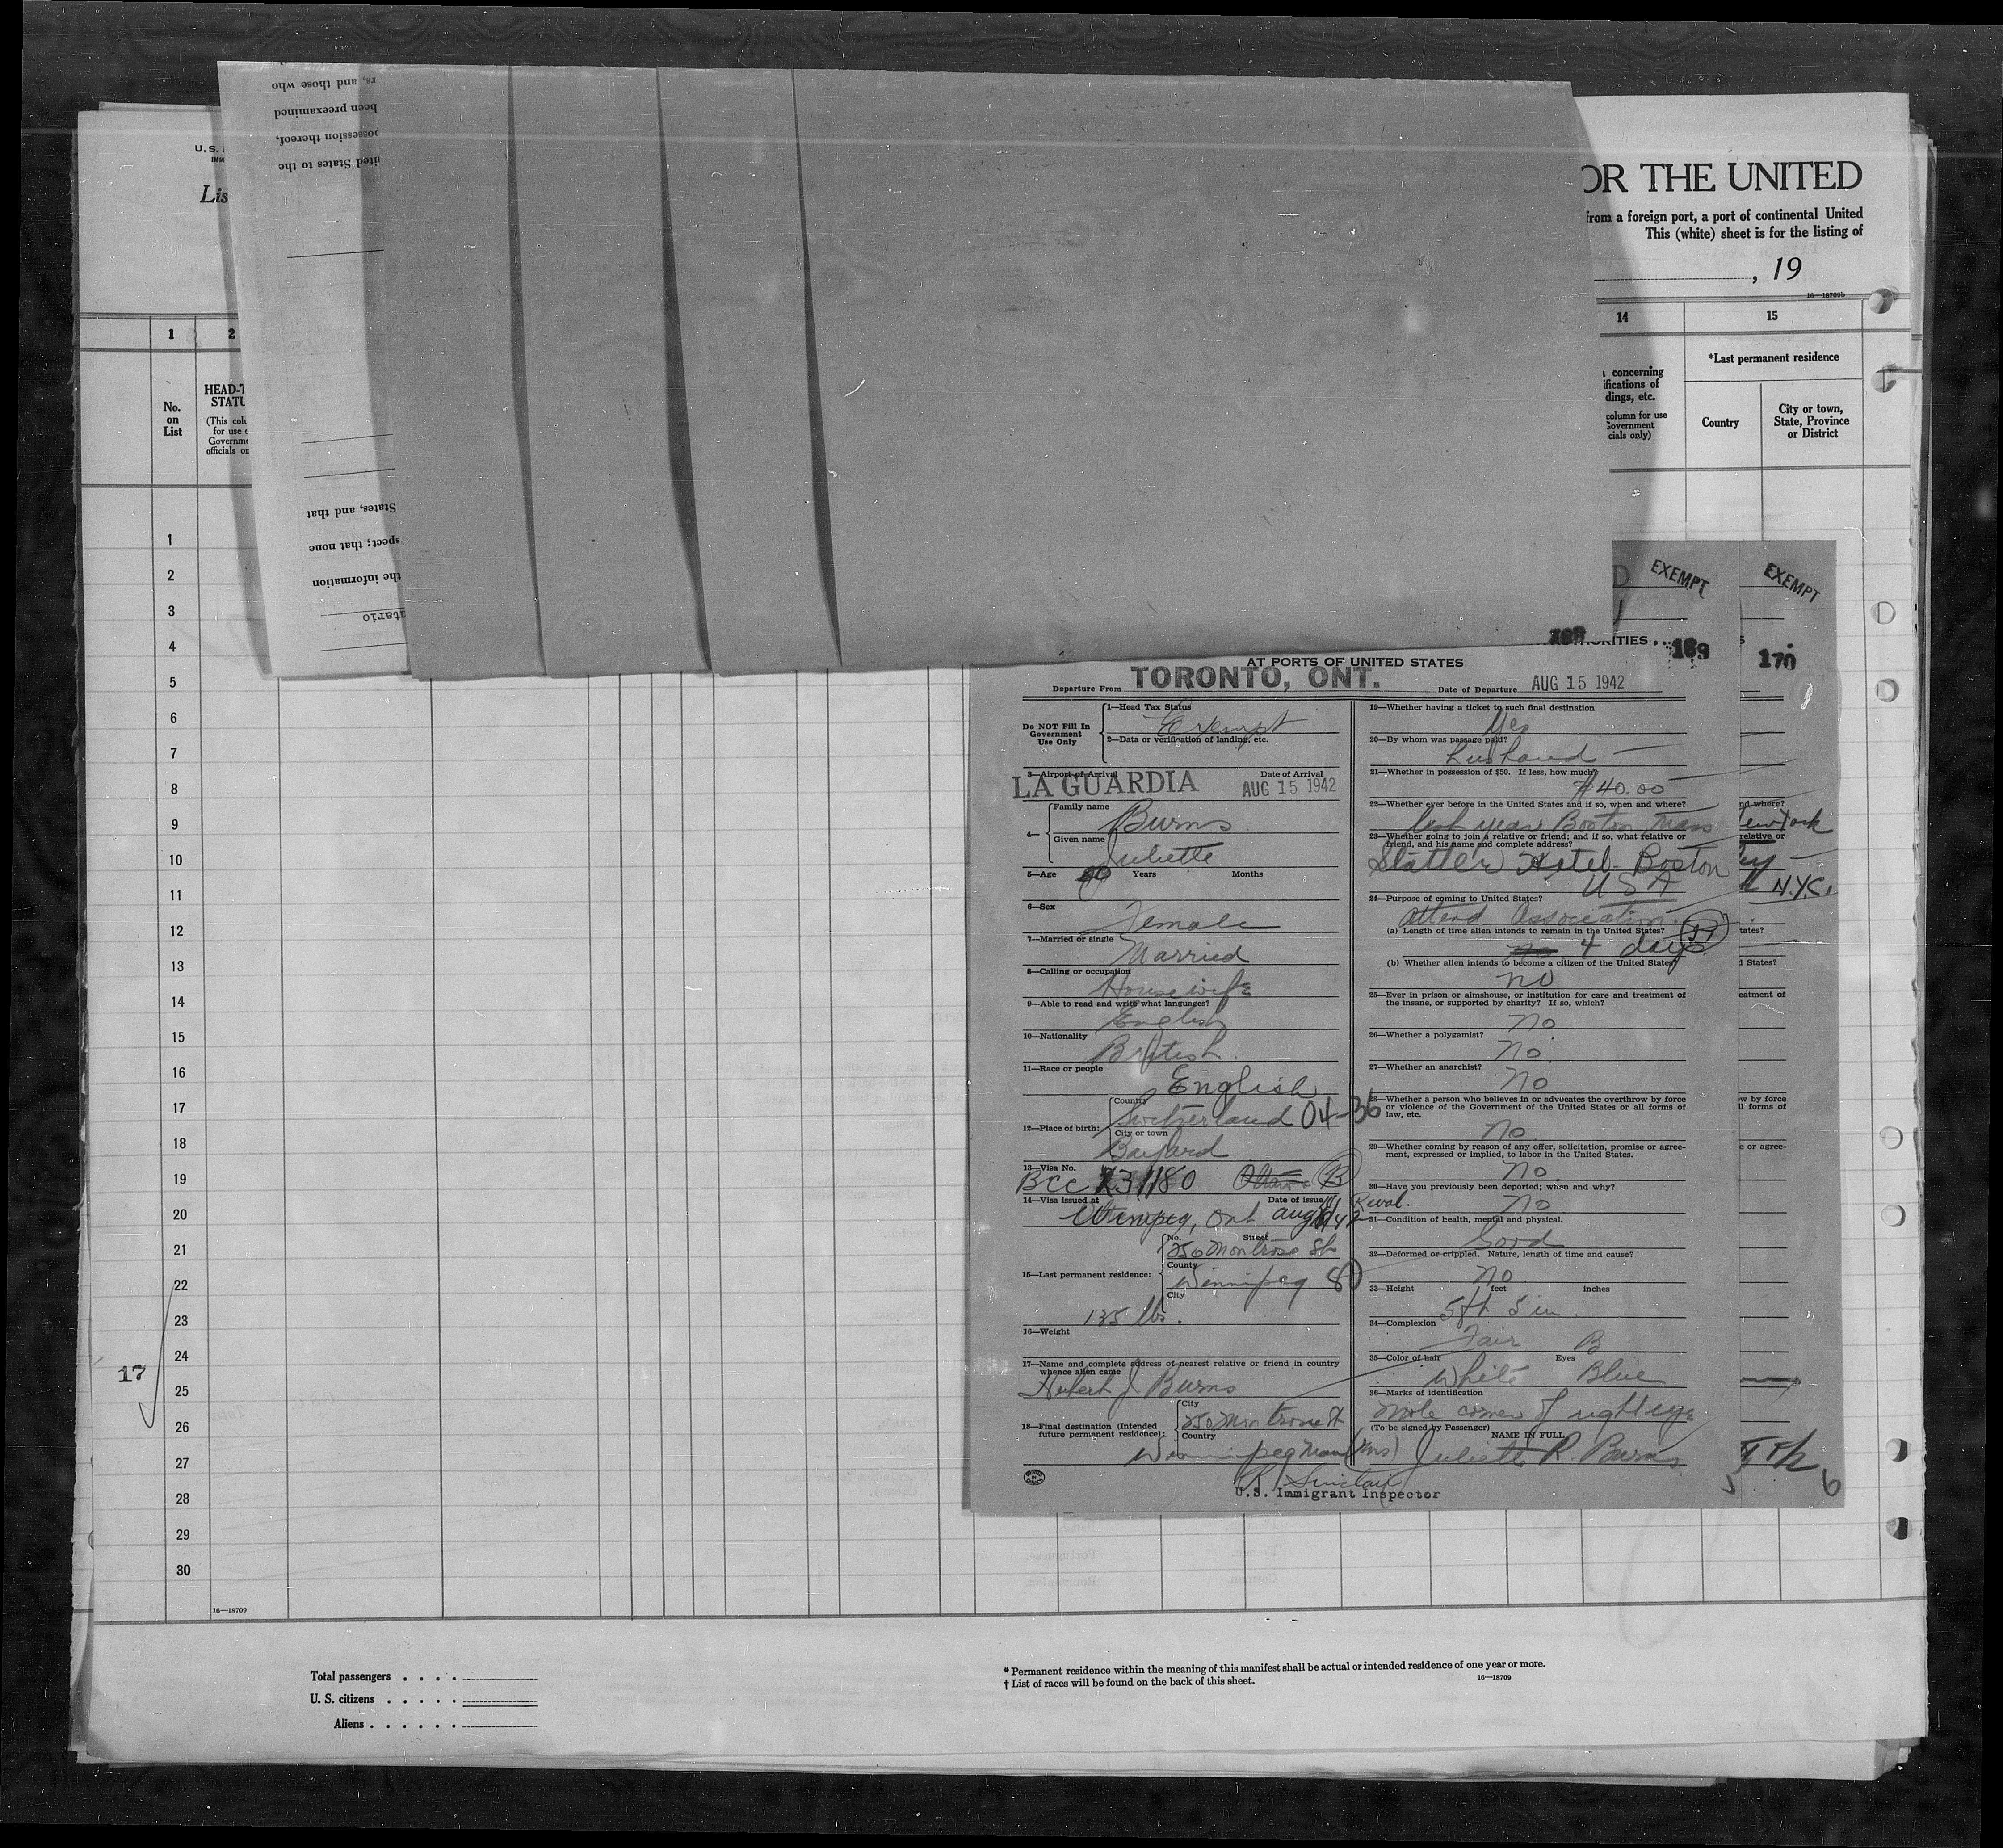 U. S.
IMM
Lis
OR THE UNITED
from a foreign port, a port of continental United
This (white) sheet is for the listing of
, 19
16—18709b
1
2
14
15
No.
on
List
HEAD-T
STATU
(This colu
for use o
Governme
officials on
concerning
ifications of
dings, etc.
column for use
Government
cials only)
*Last permanent residence
Country
City or town,
State, Province
or District
rs, and those who
been preexamined
possession thereof,
ited States to the
States, and that
spect; that none
the information
ntario
1
2
3
4
5
6
7
8
9
10
11
12
13
14
15
16
17
18
19
20
21
22
23
24
25
26
27
28
29
30
17
16—18709
EXEMPT
EXEMPT
169
170
AT PORTS OF UNITED STATES
Departure From TORONTO, ONT.
Date of Departure AUG 15 1942
Do NOT Fill In
Government
Use Only
1—Head Tax Status
Exempt
2—Data or verification of landing, etc.
3—Airport of Arrival
Date of Arrival
LA GUARDIA AUG 15 1942
4—
Family name
Burns
Given name
Juliette
5—Age Years Months
6—Sex
Female
7—Married or single
Married
8—Calling or occupation
Housewife
9—Able to read and write what languages?
English
10—Nationality
British
11—Race or people
English
12—Place of birth:
Country
Switzerland 04-36
City or town
13—Visa No.
BCC
14—Visa issued at
Date of issue
Winnipeg, Ont
15—Last permanent residence:
No. Street
250 Montrose St
County
Winnipeg
City
135 lbs.
16—Weight
17—Name and complete address of nearest relative or friend in country
whence alien came
Hubert J Burns
18—Final destination (Intended
future permanent residence):
City
250 Montrose St
Country
Winnipeg Man
19—Whether having a ticket to such final destination
Yes
20—By whom was passage paid?
husband
21—Whether in possession of $50. If less, how much?
$40.00
22—Whether ever before in the United States and if so, when and where?
last year Boston Mass
23—Whether going to join a relative or friend; and if so, what relative or
friend, and his name and complete address?
Statler Hotel - Boston
USA
24—Purpose of coming to United States?
attend Association
(a) Length of time alien intends to remain in the United States?
4 days
(b) Whether alien intends to become a citizen of the United States?
no
25—Ever in prison or almshouse, or institution for care and treatment of
the insane, or supported by charity? If so, which?
no
26—Whether a polygamist?
no
27—Whether an anarchist?
no
28—Whether a person who believes in or advocates the overthrow by force
or violence of the Government of the United States or all forms of
law, etc.
no
29—Whether coming by reason of any offer, solicitation, promise or agree-
ment, expressed or implied, to labor in the United States.
no
30—Have you previously been deported; when and why?
no
31—Condition of health, mental and physical.
Good
32—Deformed or crippled. Nature, length of time and cause?
no
33—Height feet inches
5 ft 5 in
34—Complexion
Fair B
35—Color of hair Eyes
White Blue
36—Marks of identification
Mole corner of right eye
(To be signed by Passenger)
NAME IN FULL
(Mrs) Juliette R. Burns
R. Sinclair
U.S. Immigrant Inspector
nd where?
relative or
N.Y.C.
tates?
d States?
eatment of
w by force
ll forms of
e or agree-
Total passengers . . . .
U. S. citizens . . . . .
Aliens . . . . . .
* Permanent residence within the meaning of this manifest shall be actual or intended residence of one year or more.
† List of races will be found on the back of this sheet.
16—18709